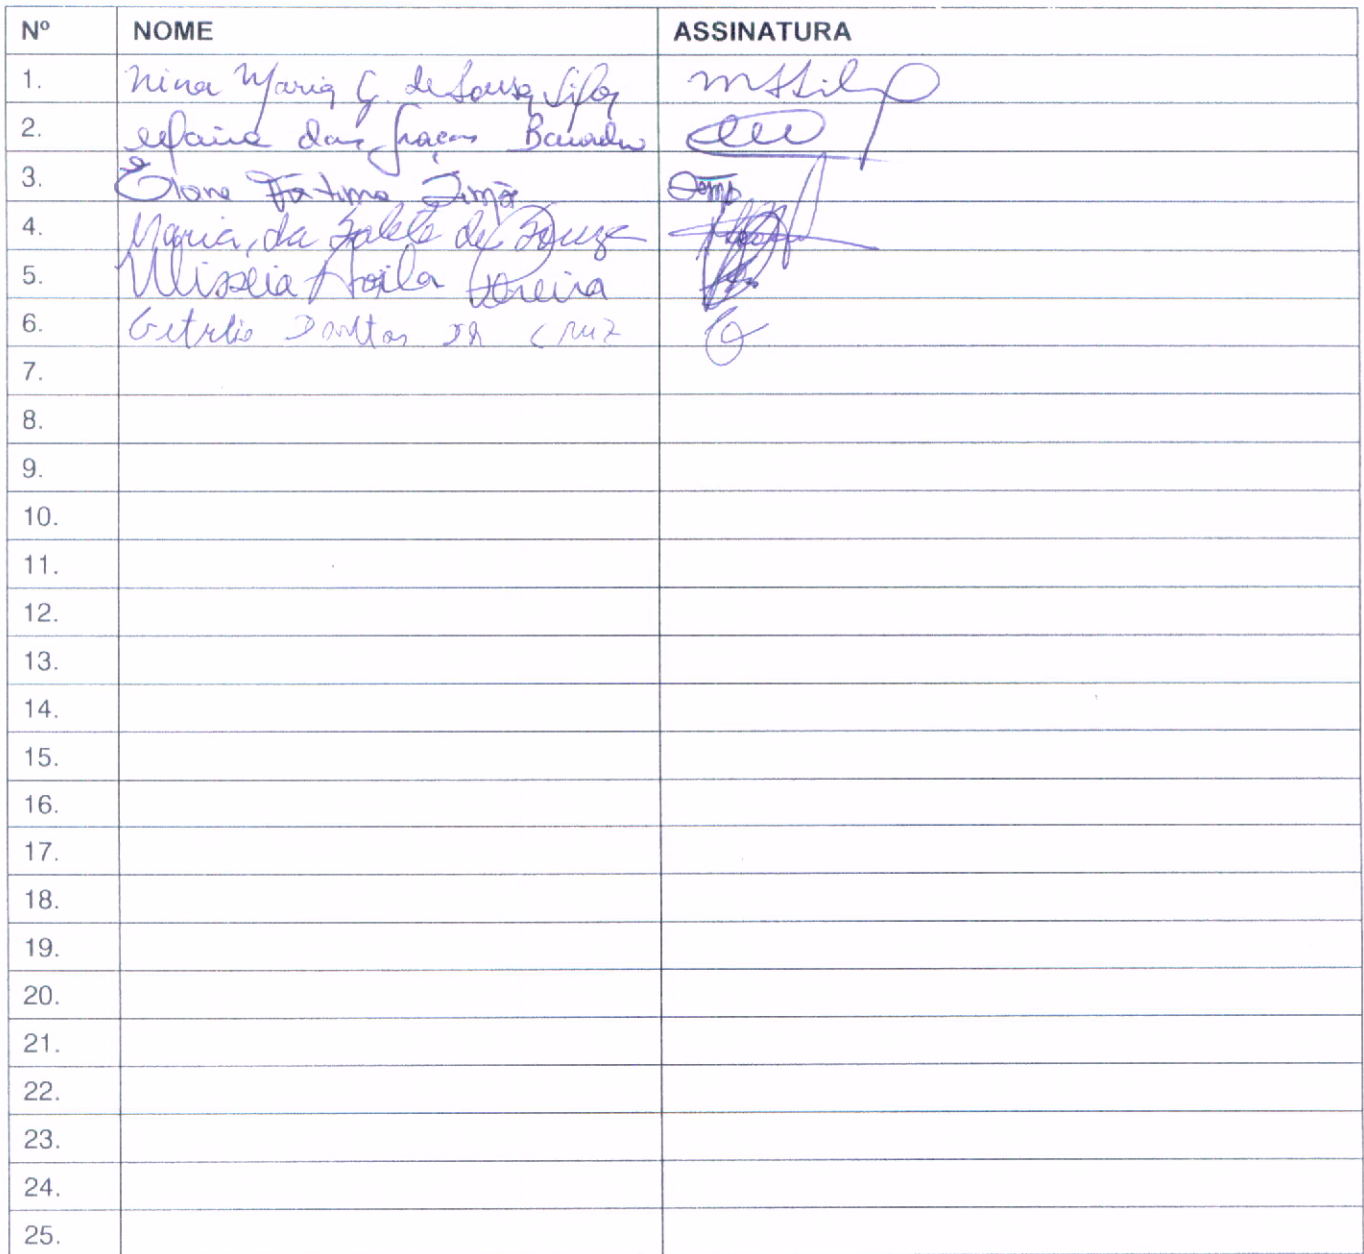 Nº NOME ASSINATURA
1. Nina Maria G. de Sousa Silva
2. Maria das Graças
3. Fátima
4. Maria da Salete de Souza
5. Ulisseia Avila Pereira
6. Getulio Dantas da Cruz
7.
8.
9.
10.
11.
12.
13.
14.
15.
16.
17.
18.
19.
20.
21.
22.
23.
24.
25.